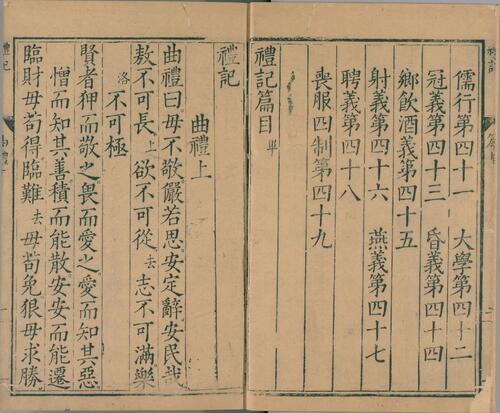 儒行第四十一 大學第四十二
冠義第四十三 昏義第四十四
鄉飲酒義第四十五
射義第四十六 燕義第四十七
聘義第四十八
喪服四制第四十九
禮記篇目 畢
禮記
曲禮上
曲禮曰毋不敬儼若思安定辭安民哉
敖不可長上欲不可從去志不可滿樂
洛不可極
賢者狎而敬之畏而愛之愛而知其惡
憎而知其善積而能散安安而能遷
臨財毋苟得臨難去毋苟免狠毋求勝
禮記